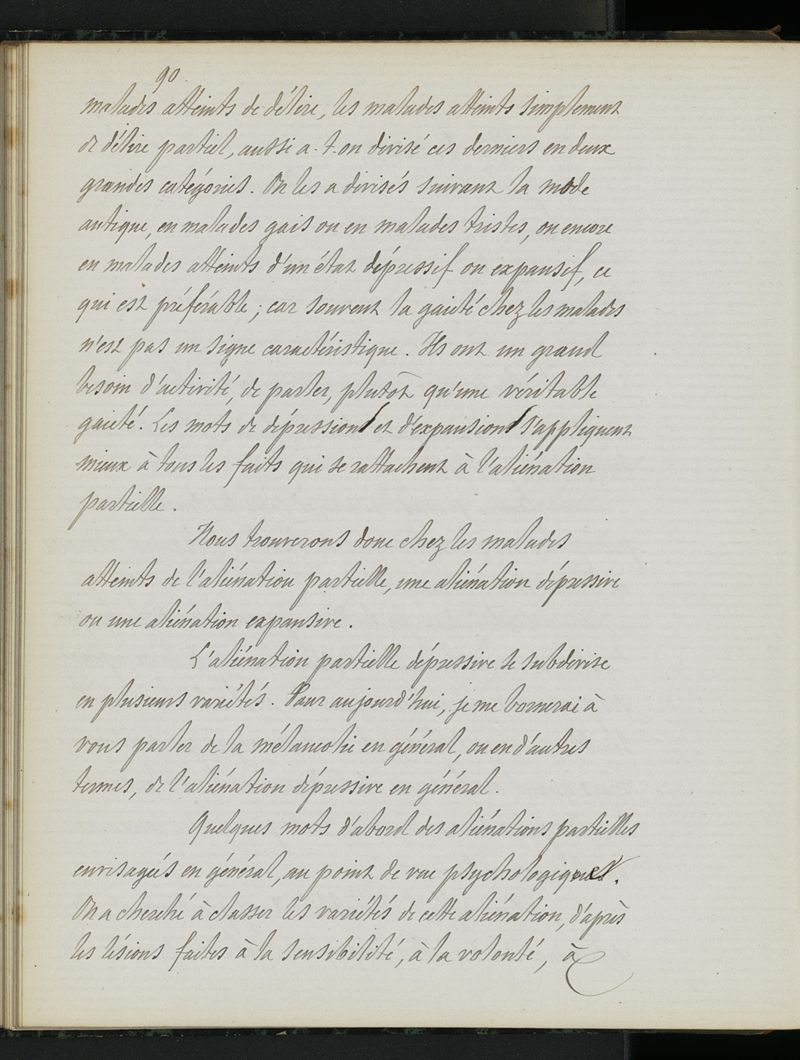 90
malades atteints de délire, les malades atteints simplement
de délire partiel, aussi a-t-on divisé ces derniers en deux
grandes catégories. On les a divisés suivant la mode
antique, en malades gais ou en malades tristes, ou encore
en malades atteints d'un état dépressif ou expansif, ce
qui est préférable ; car souvent la gaieté chez les malades
n'est pas un signe caractéristique. Ils ont un grand
besoin d'activité, de parler, plutôt qu'une véritable
gaieté. Les mots de dépression et d'expansion s'appliquent
mieux à tous les faits qui se rattachent à l'aliénation
partielle.
Nous trouverons donc chez les malades
atteints de l'aliénation partielle, une aliénation dépressive
ou une aliénation expansive.
L'aliénation partielle dépressive se subdivise
en plusieurs variétés. Pour aujourd'hui, je me bornerai à
vous parler de la mélancolie en général, ou en d'autres
termes, de l'aliénation dépressive en général.
Quelques mots d'abord des aliénations partielles
envisagées en général, au point de vue psychologique.
On a cherché à classer les variétés de cette aliénation, d'après
les lésions faites à la sensibilité, à la volonté, à